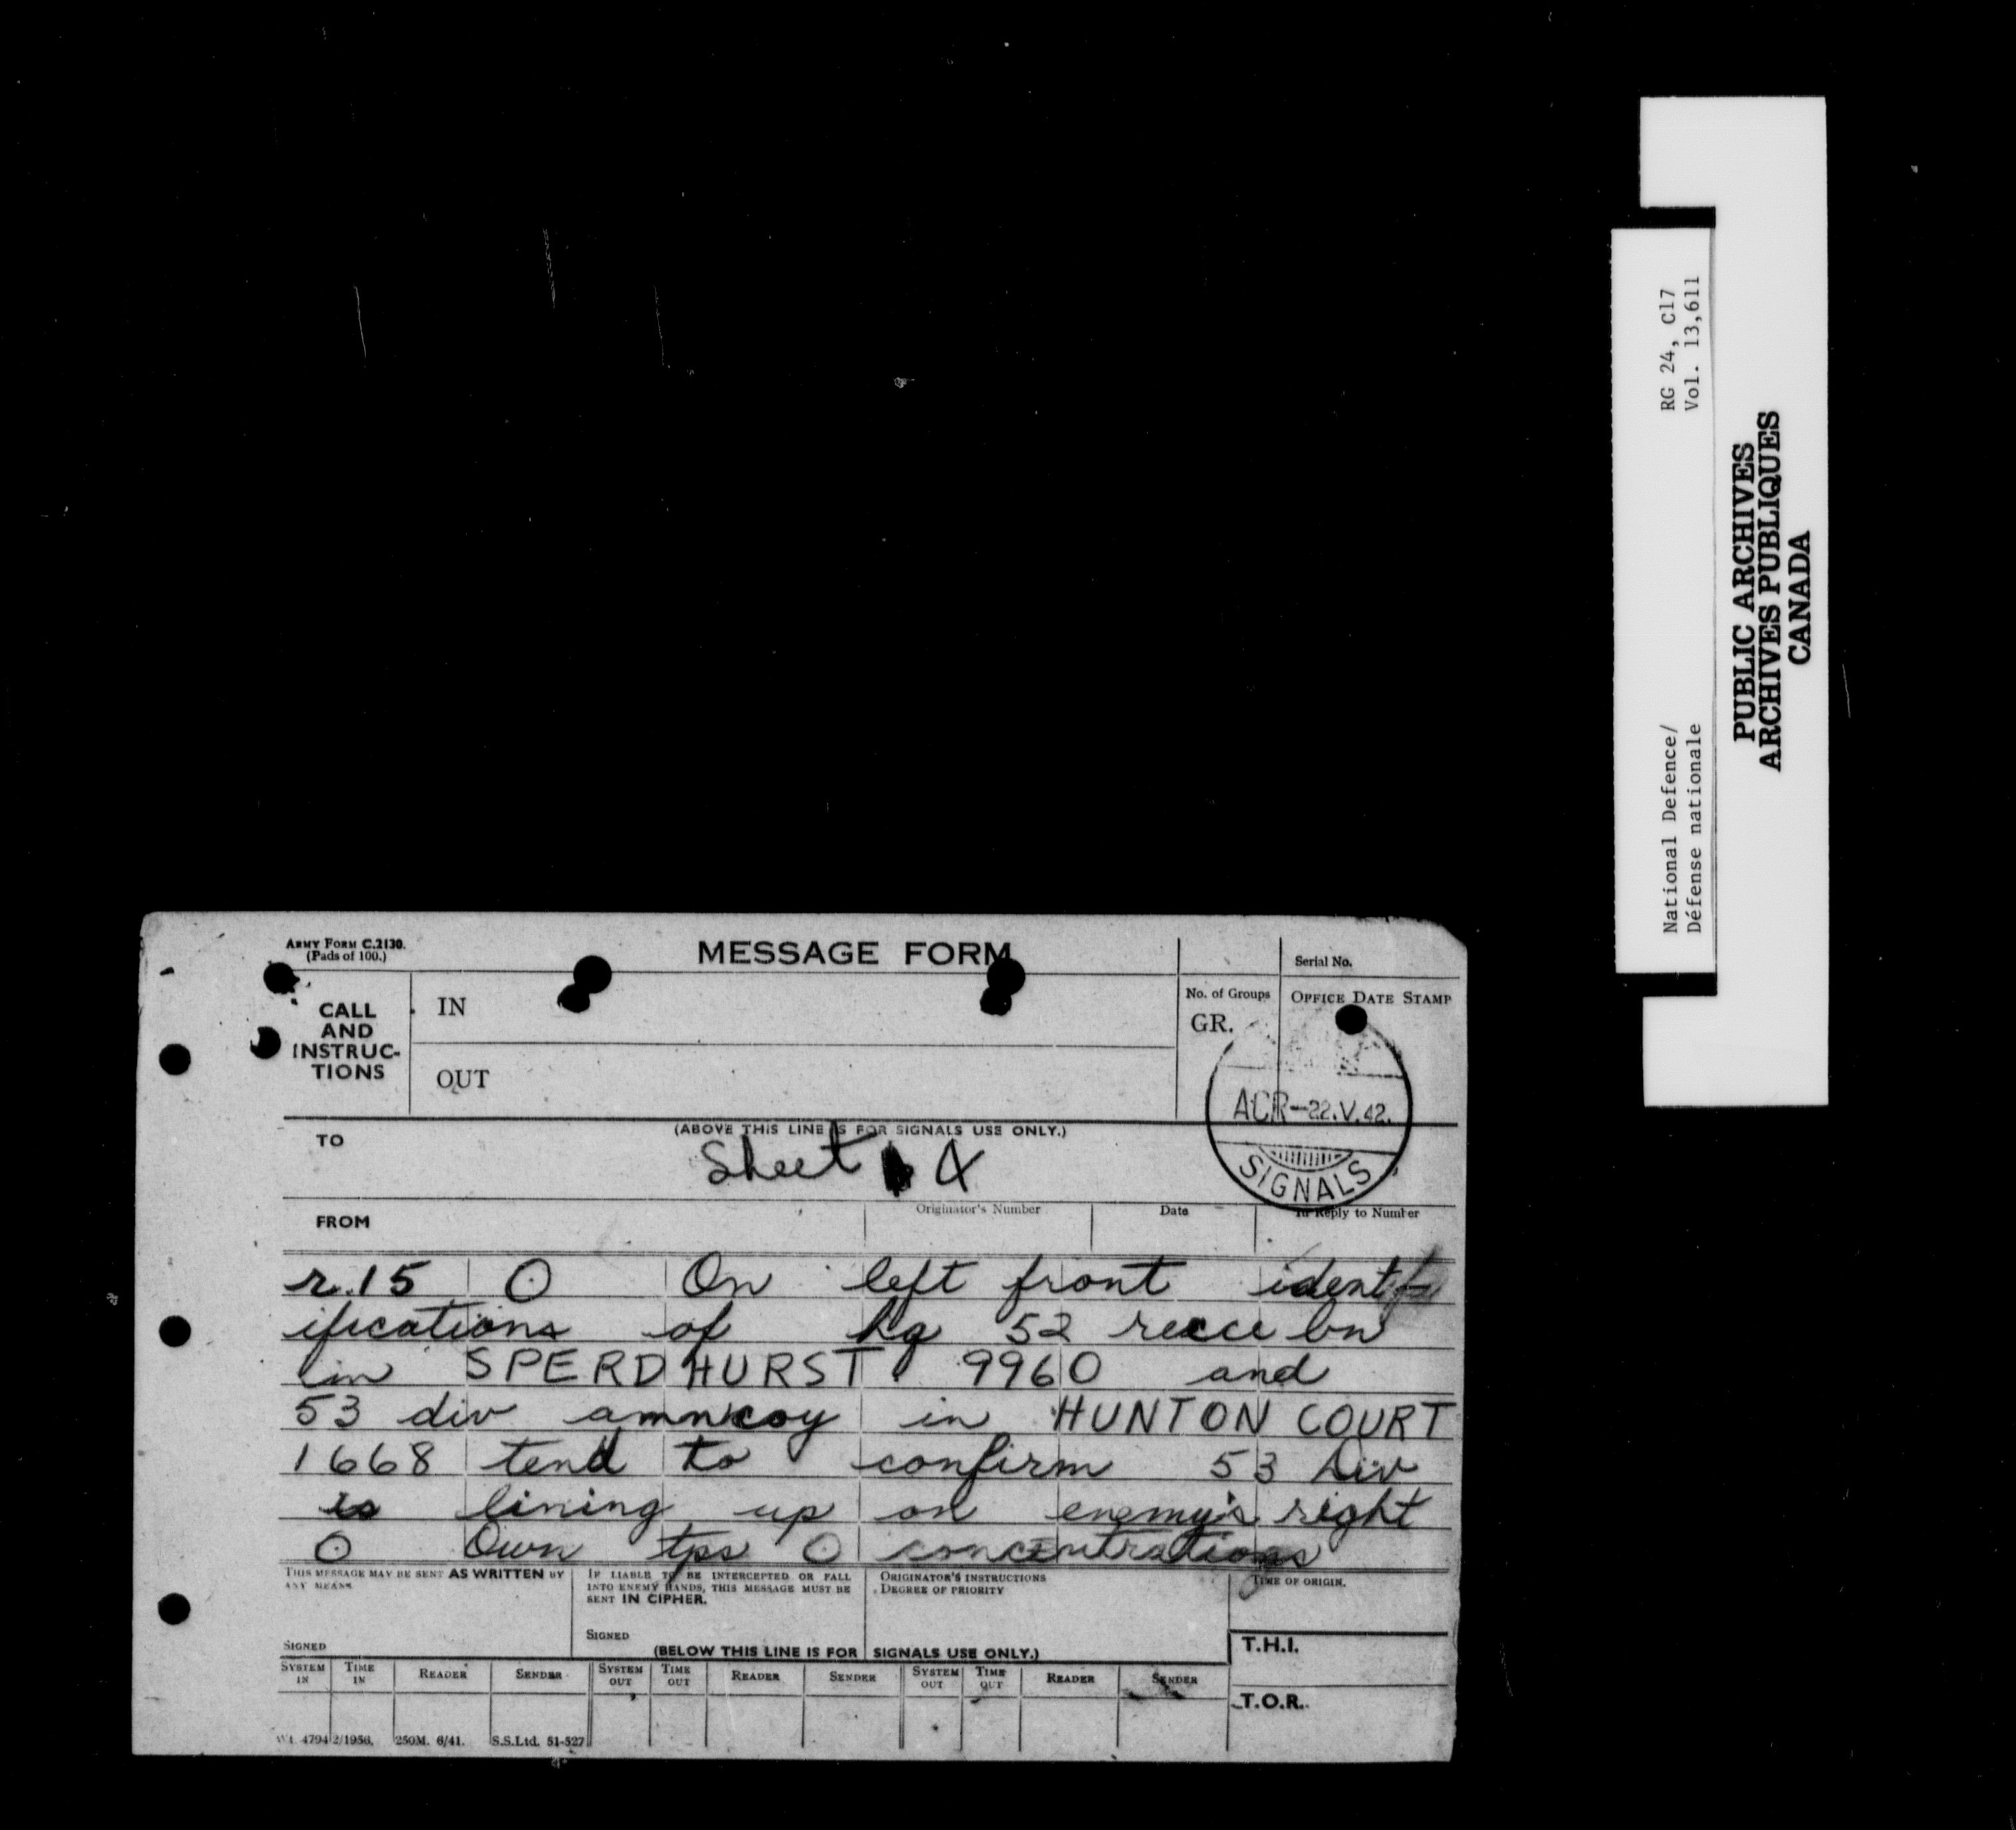 ARMY FORM C.2130.
(Pads of 100.)
MESSAGE FORM
Serial No.
CALL
AND
INSTRUC-
TIONS
IN
OUT
No. of Groups
GR.
OFFICE DATE STAMP
ACR-22.V.42.
SIGNALS
(ABOVE THIS LINE IS FOR SIGNALS USE ONLY.)
TO
Sheet 4
FROM
Originator's Number
Date
In Reply to Number
r.15 O On left front identif
ifications of hq 52 recce bn
in SPERDHURST 9960 and
53 div amn coy in HUNTON COURT
1668 tend to confirm 53 Div
is lining up on enemy's right
O Own tps O concentrations
THIS MESSAGE MAY BE SENT AS WRITTEN BY
ANY MEANS
SIGNED
IF LIABLE TO BE INTERCEPTED OR FALL
INTO ENEMY HANDS, THIS MESSAGE MUST BE
SENT IN CIPHER.
SIGNED
ORIGINATOR'S INSTRUCTIONS
DEGREE OF PRIORITY
TIME OF ORIGIN.
(BELOW THIS LINE IS FOR SIGNALS USE ONLY.)
T.H.I.
T.O.R.
SYSTEM IN
TIME IN
READER
SENDER
SYSTEM OUT
TIME OUT
READER
SENDER
SYSTEM OUT
TIME OUT
READER
SENDER
Wt. 4794 2/1956. 250M. 6/41. S.S.Ltd. 51-527
National Defence/
Défense nationale
RG 24, C17
Vol. 13,611
PUBLIC ARCHIVES
ARCHIVES PUBLIQUES
CANADA